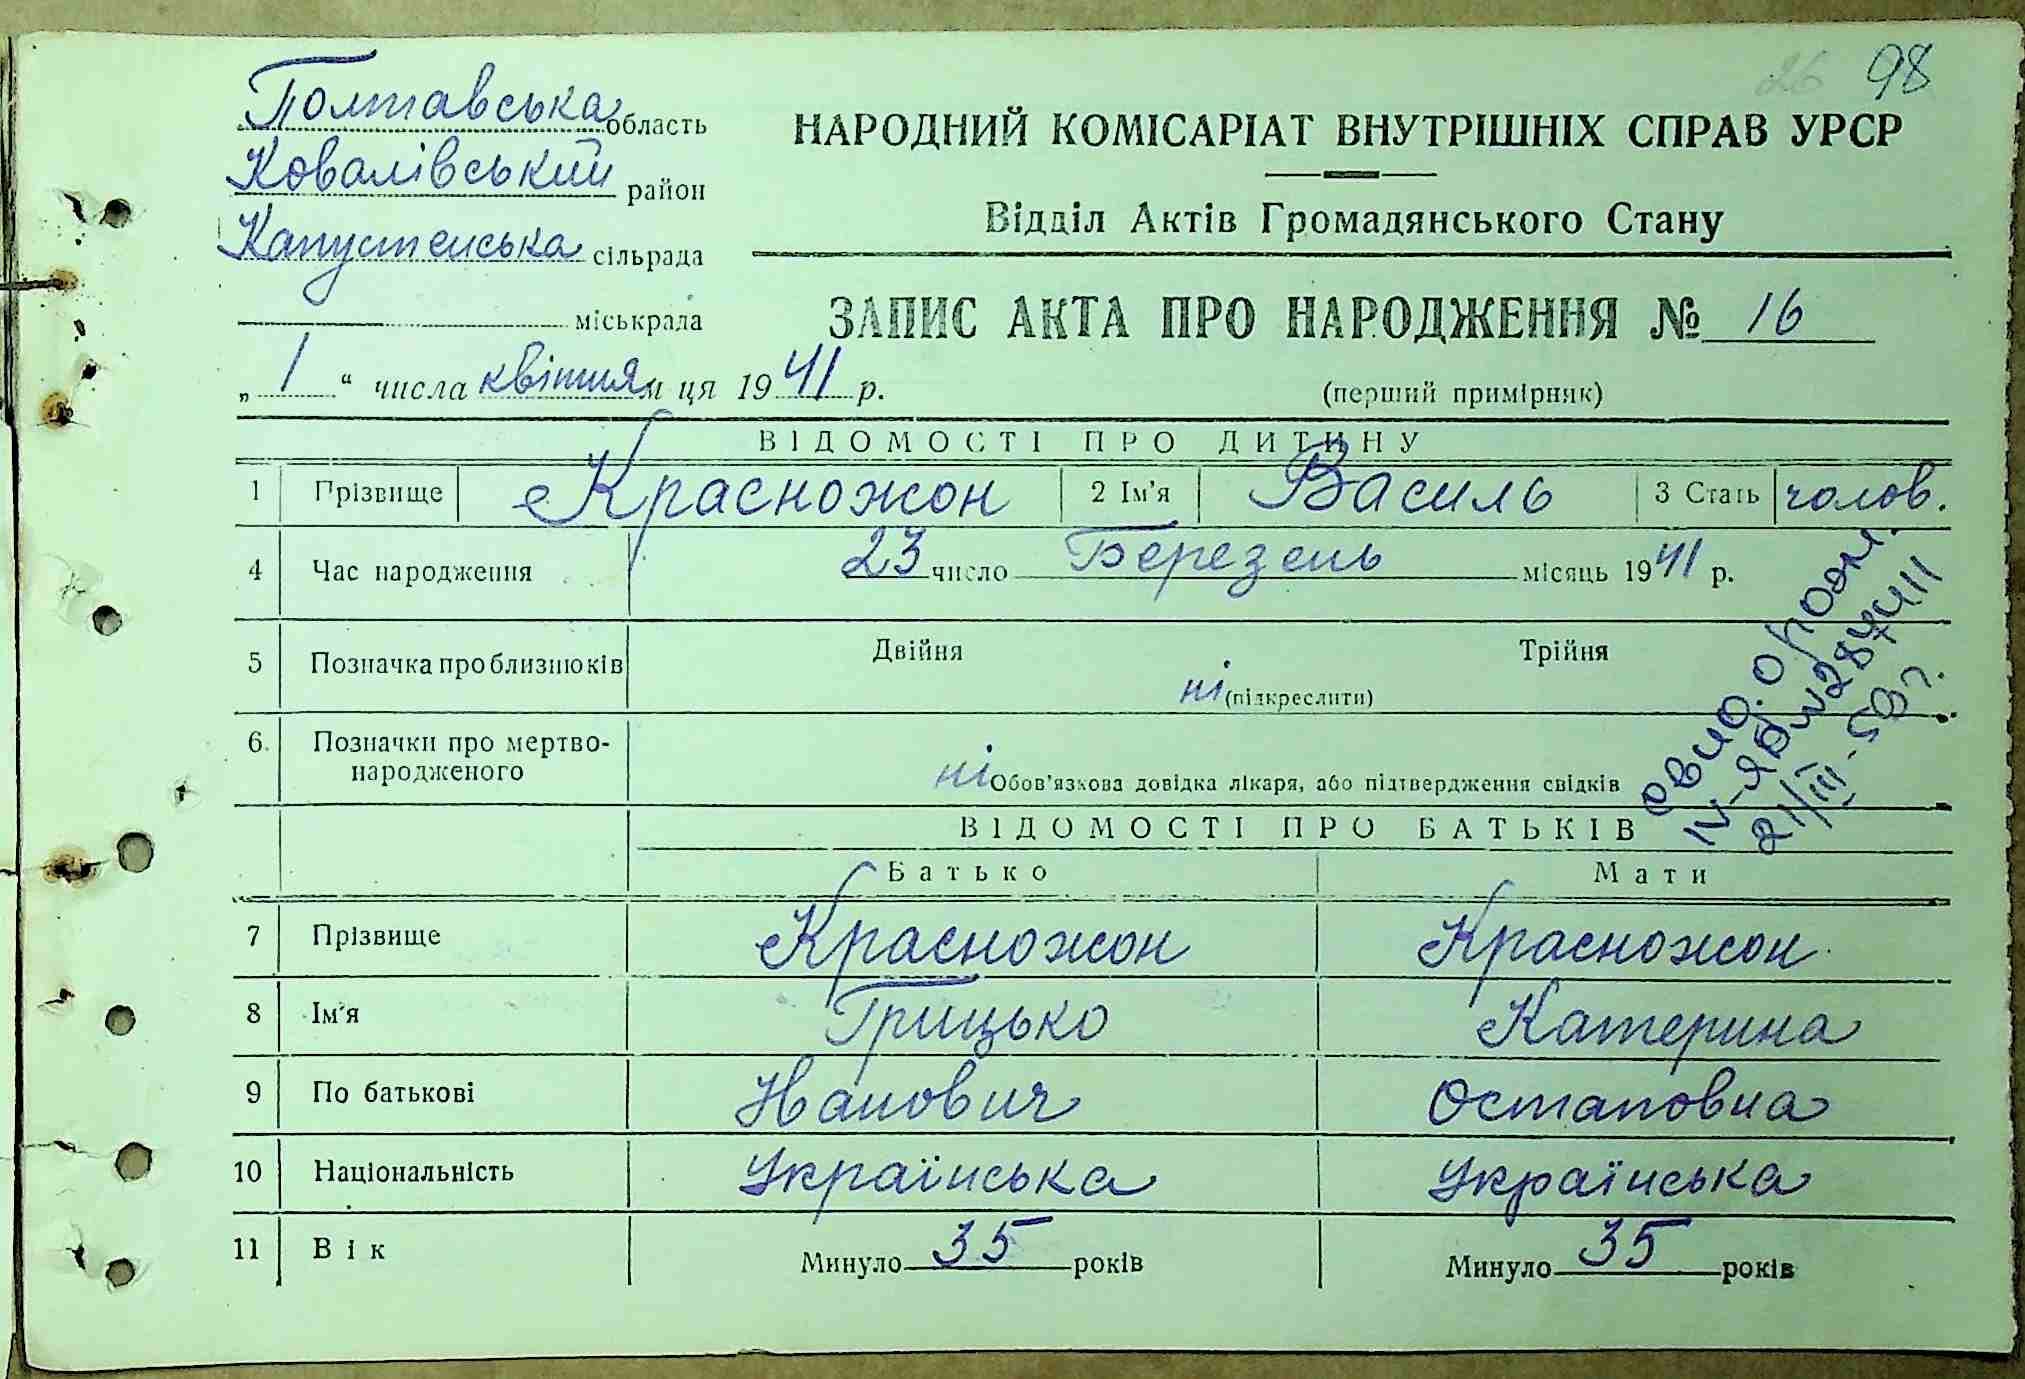 26 98
Полтавська область
Ковалівський район
Капустенська сільрада
міськрада
„ 1 “ числа квітня м ця 1941 р.
НАРОДНИЙ КОМІСАРІАТ ВНУТРІШНІХ СПРАВ УРСР
Відділ Актів Громадянського Стану
ЗАПИС АКТА ПРО НАРОДЖЕННЯ № 16
(перший примірник)
ВІДОМОСТІ ПРО ДИТИНУ
1 Прізвище Красножон 2 Ім’я Василь 3 Стать чолов.
4 Час народження 23 число Березень місяць 1941 р.
5 Позначка про близнюків Двійня Трійня
ні (підкреслити)
6. Позначки про мертво-
народженого
ні Обов’язкова довідка лікаря, або підтвердження свідків
свид. о рожд.
IV-ЯБ №
21/III-58 г.
ВІДОМОСТІ ПРО БАТЬКІВ
Батько Мати
7 Прізвище Красножон Красножон
8 Ім’я Грицько Катерина
9 По батькові Йванович Остаповна
10 Національність Українська Українська
11 Вік Минуло 35 років Минуло 35 років